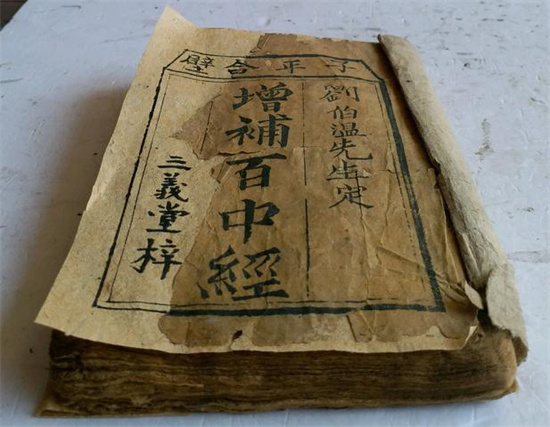 子年合璧
劉伯温先生定
增補百中經
三義堂梓